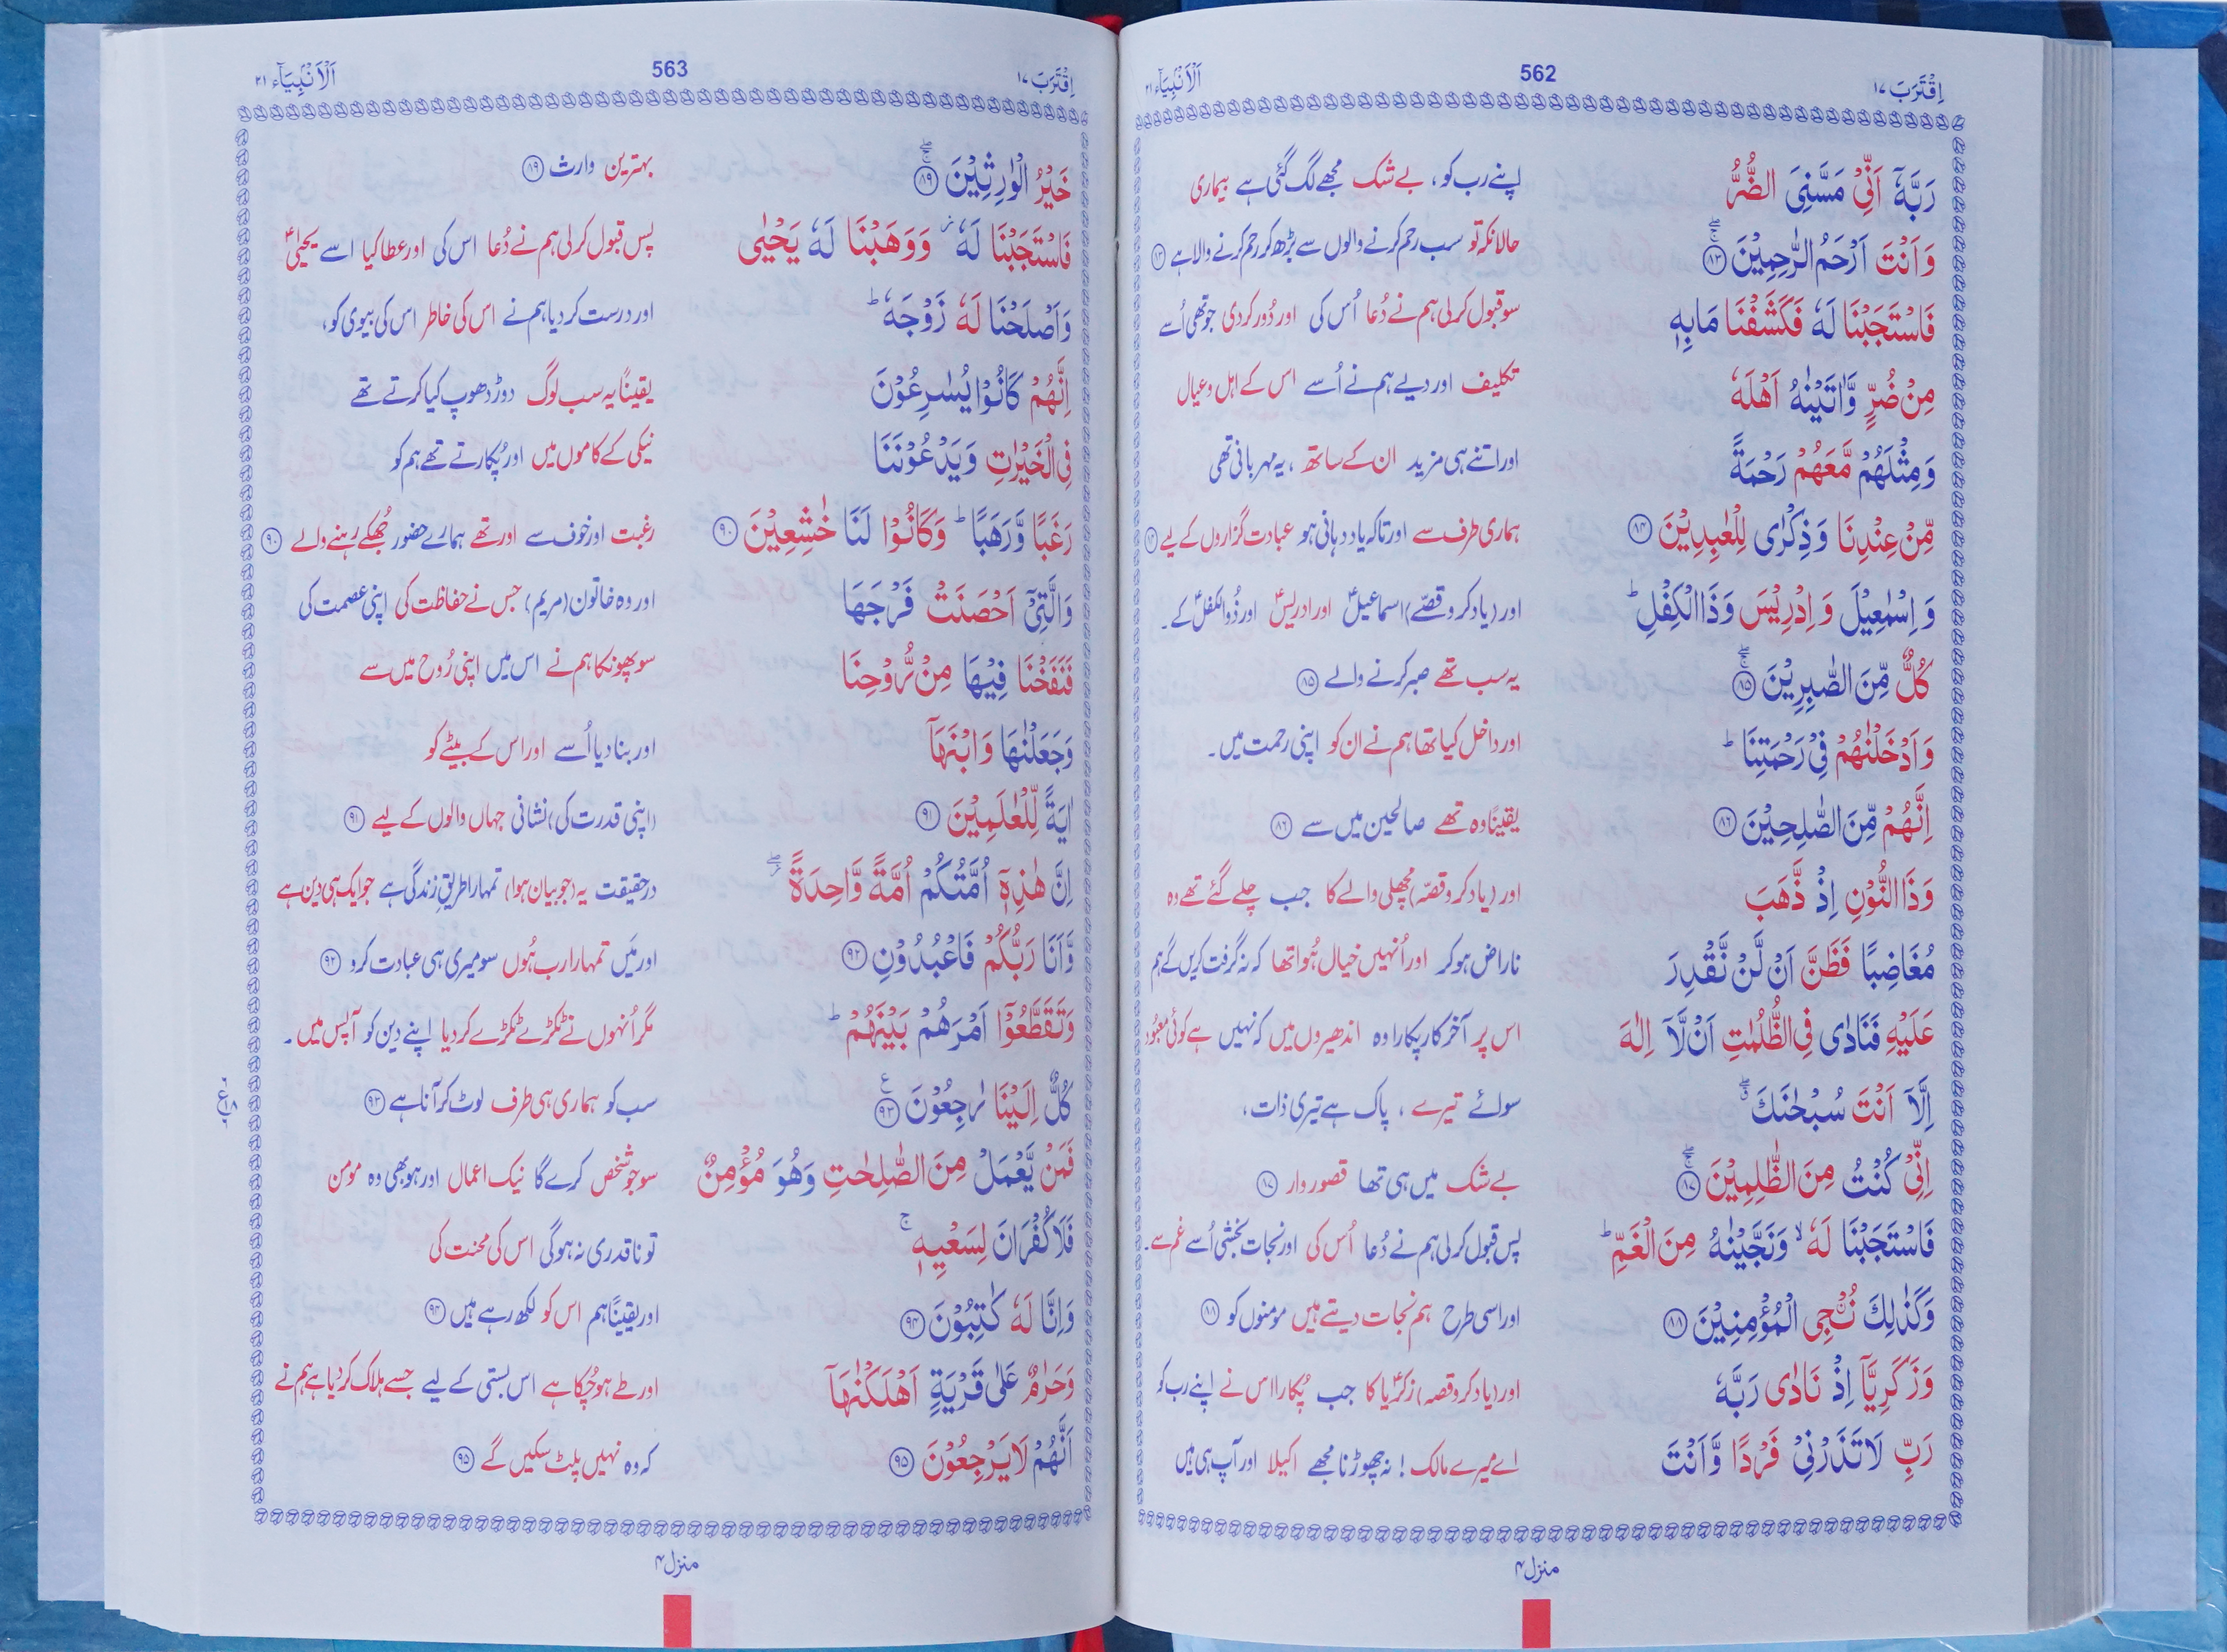 اِقْتَرَبَ ١٧ 562 اَلْاَنْبِيَآء ٢١
رَبَّهٗۤ اَنِّیْ مَسَّنِیَ الضُّرُّ اپنے رب کو، بے شک مجھے لگ گئی ہے بیماری
وَاَنْتَ اَرْحَمُ الرّٰحِمِیْنَ ۚۖ ﴿۸۳﴾ حالانکہ تو سب رحم کرنے والوں سے بڑھ کر رحم کرنے والا ہے ﴿۸۳﴾
فَاسْتَجَبْنَا لَهٗ فَكَشَفْنَا مَا بِهٖ سو قبول کرلی ہم نے دُعا اُس کی اور دُور کردی جو تھی اُسے
مِنْ ضُرٍّ وَّاٰتَیْنٰهُ اَهْلَهٗ تکلیف اور دیے ہم نے اُسے اس کے اہل و عیال
وَمِثْلَهُمْ مَّعَهُمْ رَحْمَةً اور اتنے ہی مزید ان کے ساتھ ، یہ مہربانی تھی
مِّنْ عِنْدِنَا وَذِكْرٰی لِلْعٰبِدِیْنَ ﴿۸۴﴾ ہماری طرف سے اور تاکہ یاد دہانی ہو عبادت گزاروں کے لیے ﴿۸۴﴾
وَاِسْمٰعِیْلَ وَاِدْرِیْسَ وَذَا الْكِفْلِ ؕ اور (یاد کرو قصّے) اسماعیلؑ اور ادریسؑ اور ذُوالکفلؑ کے۔
كُلٌّ مِّنَ الصّٰبِرِیْنَ ۚۖ ﴿۸۵﴾ یہ سب تھے صبر کرنے والے ﴿۸۵﴾
وَاَدْخَلْنٰهُمْ فِیْ رَحْمَتِنَا ؕ اور داخل کیا تھا ہم نے ان کو اپنی رحمت میں۔
اِنَّهُمْ مِّنَ الصّٰلِحِیْنَ ﴿۸۶﴾ یقینًا وہ تھے صالحین میں سے ﴿۸۶﴾
وَذَا النُّوْنِ اِذْ ذَّهَبَ اور (یاد کرو قصّہ) مچھلی والے کا جب چلے گئے تھے وہ
مُغَاضِبًا فَظَنَّ اَنْ لَّنْ نَّقْدِرَ ناراض ہوکر اور اُنہیں خیال ہُوا تھا کہ نہ گرفت کریں گے ہم
عَلَیْهِ فَنَادٰی فِی الظُّلُمٰتِ اَنْ لَّاۤ اِلٰهَ اس پر آخر کار پکارا وہ اندھیروں میں کہ نہیں ہے کوئی معبُود
اِلَّاۤ اَنْتَ سُبْحٰنَكَ ۖۗ سوائے تیرے ، پاک ہے تیری ذات،
اِنِّیْ كُنْتُ مِنَ الظّٰلِمِیْنَ ۚۖ ﴿۸۷﴾ بے شک میں ہی تھا قصور وار ﴿۸۷﴾
فَاسْتَجَبْنَا لَهٗ ۙ وَنَجَّیْنٰهُ مِنَ الْغَمِّ ؕ پس قبول کرلی ہم نے دُعا اُس کی اور نجات بخشی اُسے غم سے۔
وَكَذٰلِكَ نُـْۨجِی الْمُؤْمِنِیْنَ ﴿۸۸﴾ اور اسی طرح ہم نجات دیتے ہیں مومنوں کو ﴿۸۸﴾
وَزَكَرِیَّاۤ اِذْ نَادٰی رَبَّهٗ اور (یاد کرو قصہ) زکرؑیا کا جب پُکارا اس نے اپنے رب کو
رَبِّ لَا تَذَرْنِیْ فَرْدًا وَّاَنْتَ اے میرے مالک ! نہ چھوڑنا مجھے اکیلا اور آپ ہی ہیں
منزل ۴
اِقْتَرَبَ ١٧ 563 اَلْاَنْبِيَآء ٢١
خَیْرُ الْوٰرِثِیْنَ ۚۖ ﴿۸۹﴾ بہترین وارث ﴿۸۹﴾
فَاسْتَجَبْنَا لَهٗ ؗ وَوَهَبْنَا لَهٗ یَحْیٰی پس قبول کرلی ہم نے دُعا اس کی اور عطا کیا اسے یحییٰؑ
وَاَصْلَحْنَا لَهٗ زَوْجَهٗ ؕ اور درست کردیا ہم نے اس کی خاطر اس کی بیوی کو،
اِنَّهُمْ كَانُوْا یُسٰرِعُوْنَ یقینًا یہ سب لوگ دوڑ دھوپ کیا کرتے تھے
فِی الْخَیْرٰتِ وَیَدْعُوْنَنَا نیکی کے کاموں میں اور پُکارتے تھے ہم کو
رَغَبًا وَّرَهَبًا ؕ وَكَانُوْا لَنَا خٰشِعِیْنَ ﴿۹۰﴾ رغبت اور خوف سے اور تھے ہمارے حضور جُھکے رہنے والے ﴿۹۰﴾
وَالَّتِیْۤ اَحْصَنَتْ فَرْجَهَا اور وہ خاتون (مریم) جس نے حفاظت کی اپنی عصمت کی
فَنَفَخْنَا فِیْهَا مِنْ رُّوْحِنَا سو پھونکا ہم نے اس میں اپنی رُوح میں سے
وَجَعَلْنٰهَا وَابْنَهَاۤ اور بنادیا اُسے اور اس کے بیٹے کو
اٰیَةً لِّلْعٰلَمِیْنَ ﴿۹۱﴾ (اپنی قدرت کی) نشانی جہاں والوں کے لیے ﴿۹۱﴾
اِنَّ هٰذِهٖۤ اُمَّتُكُمْ اُمَّةً وَّاحِدَةً ۖؗ درحقیقت یہ (جو بیان ہوا) تمہارا طریقِ زندگی ہے جو ایک ہی دین ہے
وَّاَنَا رَبُّكُمْ فَاعْبُدُوْنِ ﴿۹۲﴾ اور مَیں تمہارا رب ہُوں سو میری ہی عبادت کرو ﴿۹۲﴾
وَتَقَطَّعُوْۤا اَمْرَهُمْ بَیْنَهُمْ ؕ مگر اُنہوں نے ٹکڑے ٹکڑے کردیا اپنے دین کو آپس میں۔
كُلٌّ اِلَیْنَا رٰجِعُوْنَ ﴿۹۳﴾ ع سب کو ہماری ہی طرف لوٹ کر آنا ہے ﴿۹۳﴾
فَمَنْ یَّعْمَلْ مِنَ الصّٰلِحٰتِ وَهُوَ مُؤْمِنٌ سو جو شخص کرے گا نیک اعمال اور ہو بھی وہ مومن
فَلَا كُفْرَانَ لِسَعْیِهٖ ۚ تو ناقدری نہ ہوگی اس کی محنت کی
وَاِنَّا لَهٗ كٰتِبُوْنَ ﴿۹۴﴾ اور یقینًا ہم اس کو لکھ رہے ہیں ﴿۹۴﴾
وَحَرٰمٌ عَلٰی قَرْیَةٍ اَهْلَكْنٰهَاۤ اور طے ہوچُکا ہے اس بستی کے لیے جسے ہلاک کردیا ہے ہم نے
اَنَّهُمْ لَا یَرْجِعُوْنَ ﴿۹۵﴾ کہ وہ نہیں پلٹ سکیں گے ﴿۹۵﴾
منزل ۴